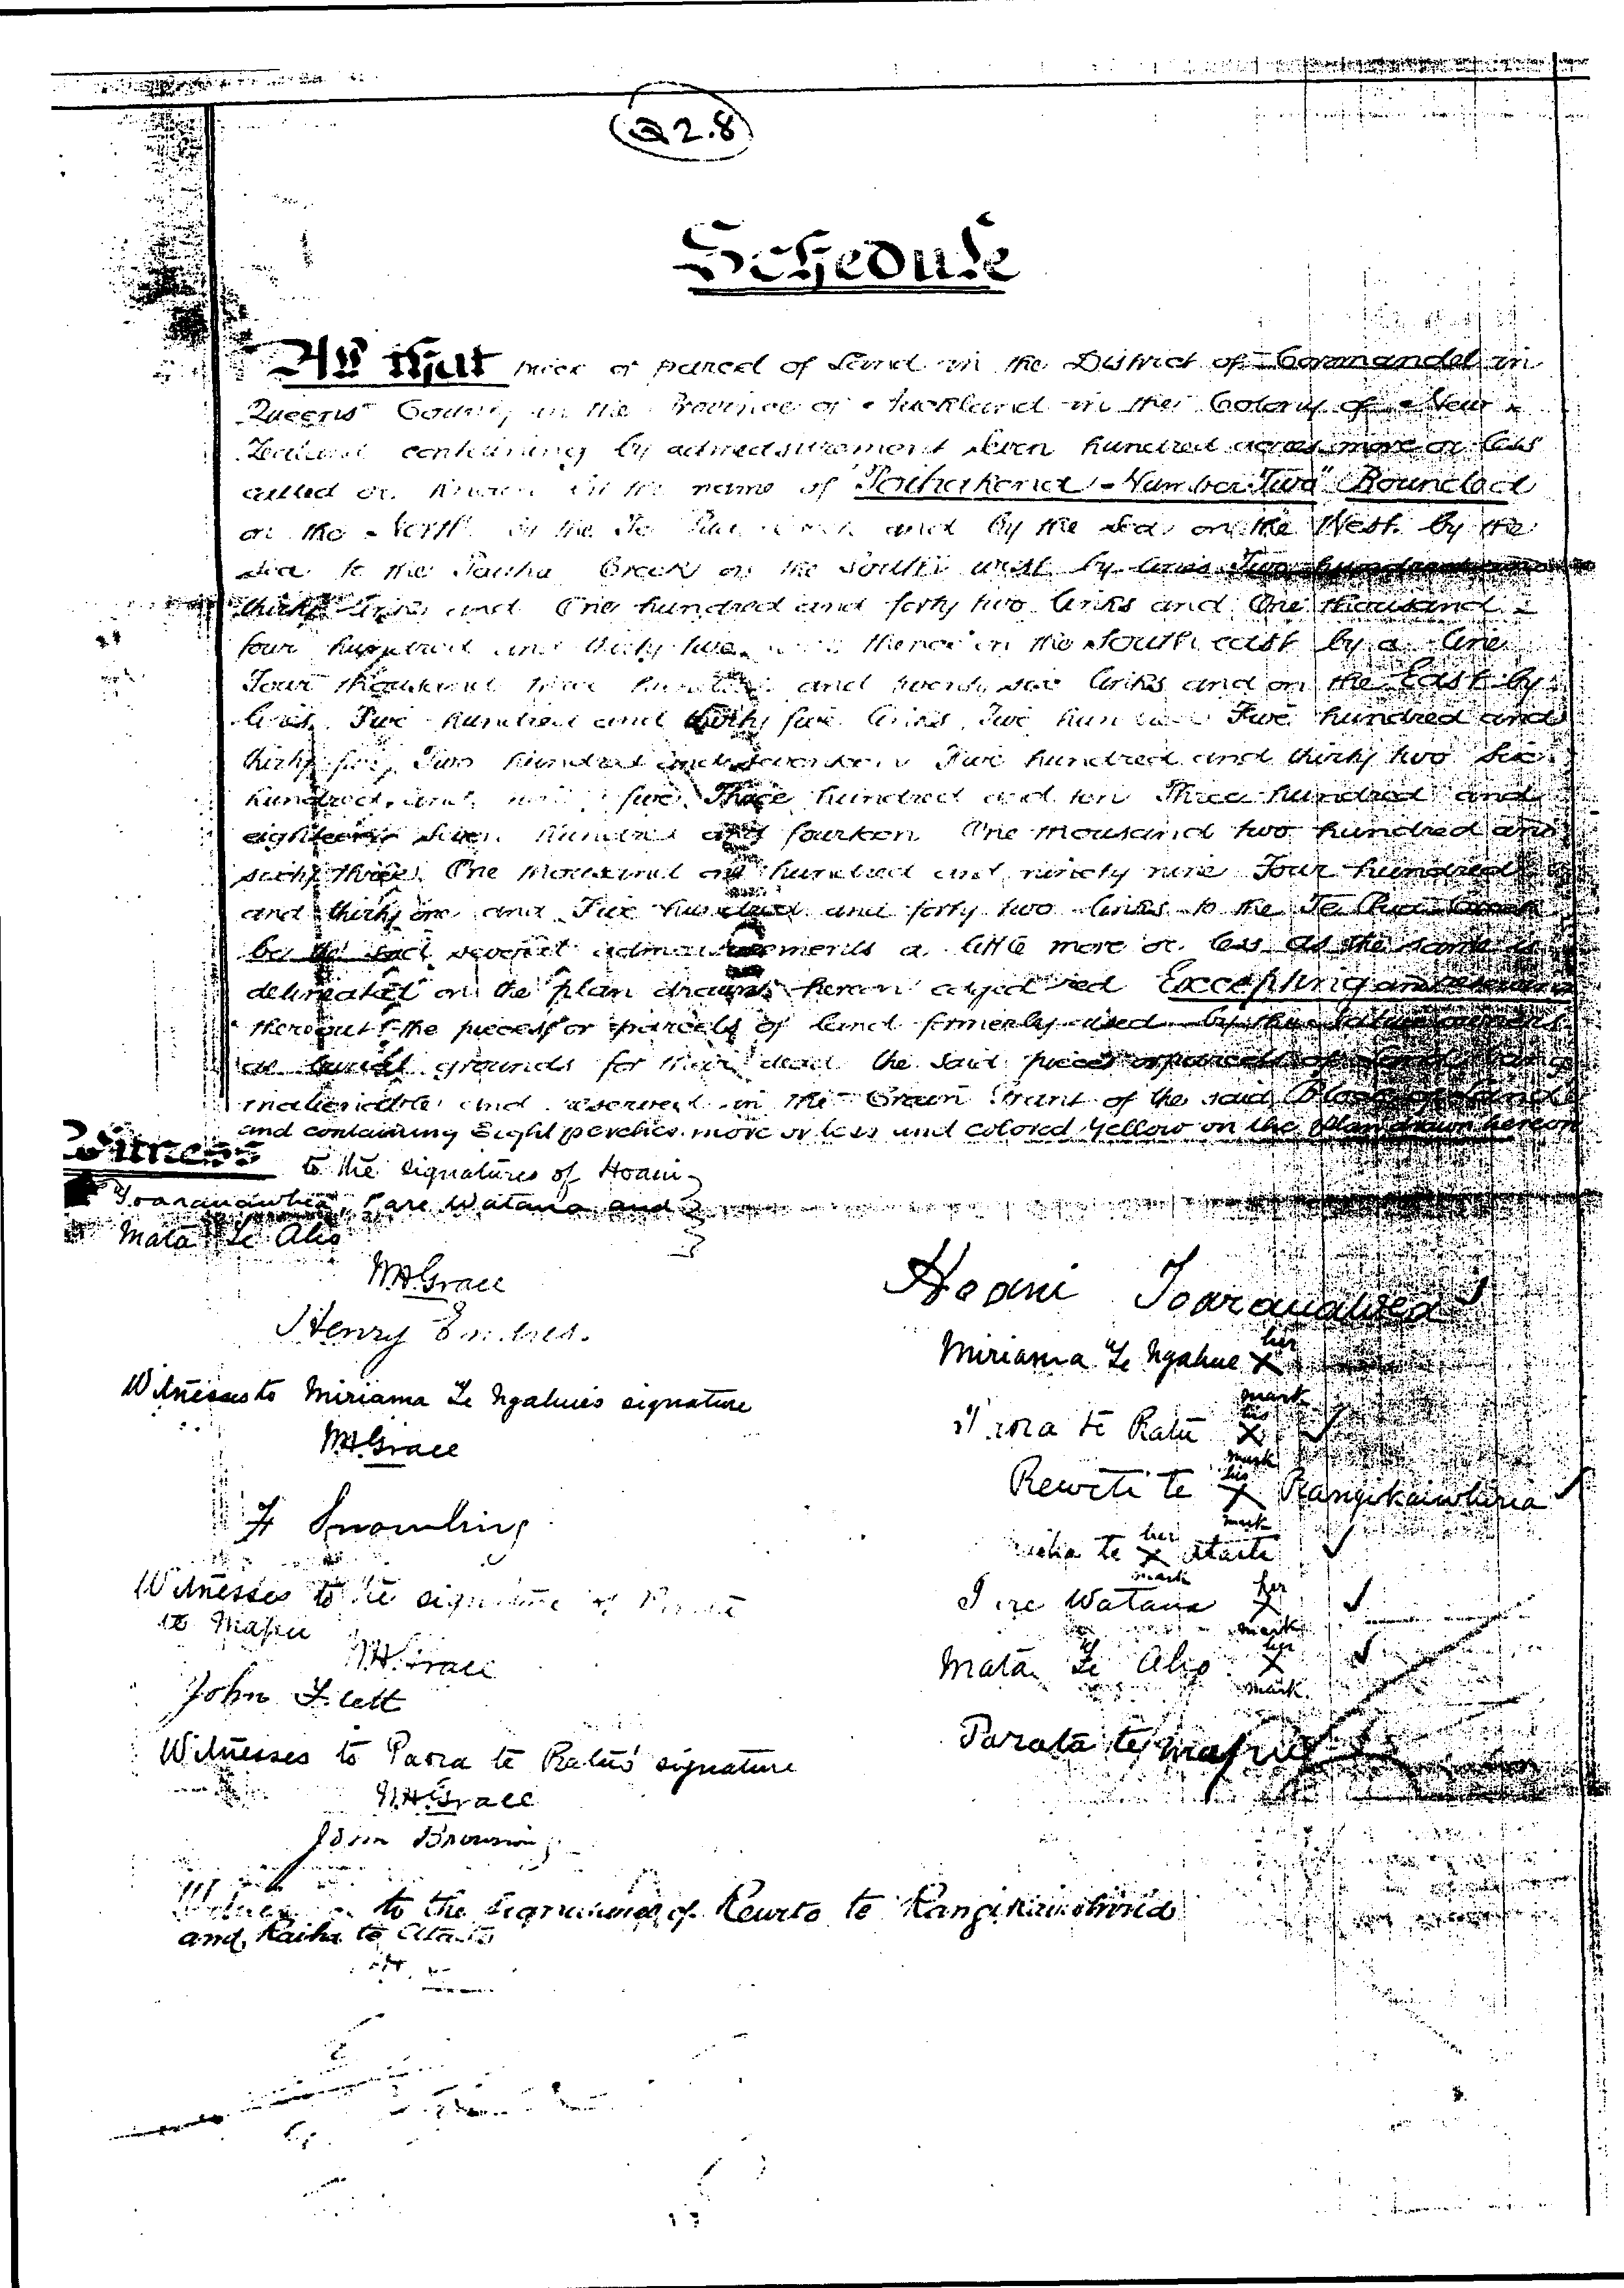 Q2.8
Schedule
All that piece or parcel of Land in the District of Coromandel in
Queens County in the Province of Auckland in the Colony of New
Zealand containing by admeasurement Seven hundred acres more or less
called or known by the name of "Pauhakena - Number Two" Bounded
on the North by the Te and by the Sea on the West by the
Sea to the Pauha Creek on the South west by lines Two hundred
thirty links and One hundred and forty two links and One thousand
four hundred and thirty two thence on the South east by a line
Four thousand hundred and twenty six links and on the East by
lines Five hundred and thirty five links Five hundred and
thirty Two hundred and seventeen Five hundred and thirty two Six
hundred and five Three hundred and ten Three hundred and
eighteen Seven hundred and fourteen One thousand two hundred and
sixty three One thousand one hundred and ninety nine Four hundred
and thirty one and Five hundred and forty two links to the Te
be the said several admeasurements a little more or less as the same is
delineated on the plan drawn hereon edged red Excepting and reserving
thereout the pieces or parcels of land formerly used by the owners
as burial grounds for their dead the said pieces or parcels of Land being
inalienable and reserved in the Crown Grant of the said Block of Land
and containing Eight perches more or less and colored Yellow on the plan drawn hereon
Witness to the signatures of Hoani
Toaranauwhea, Pare Watana and
Mata Te Aho
W.H. Grace
Henry
Witnesses to Miriama Te Ngahue's signature
W.H. Grace
Witnesses to the signature of Parata
te Mapu
W.H. Grace
John Flett
Witnesses to Paora te Ratu's signature
W.H. Grace
John Browning
Witnesses to the Signatures of Rewite te Rangikaiwhiria
and Raiha te Ataite
Hoani Toaranauwhea
Miriama Te Ngahue her X mark
Paora te Ratu his X mark
Rewite te his X mark Rangikaiwhiria
Raiha te her X mark Ataite
Pare Watana her X mark
Mata Te Aho her X mark
Parata te Mapu